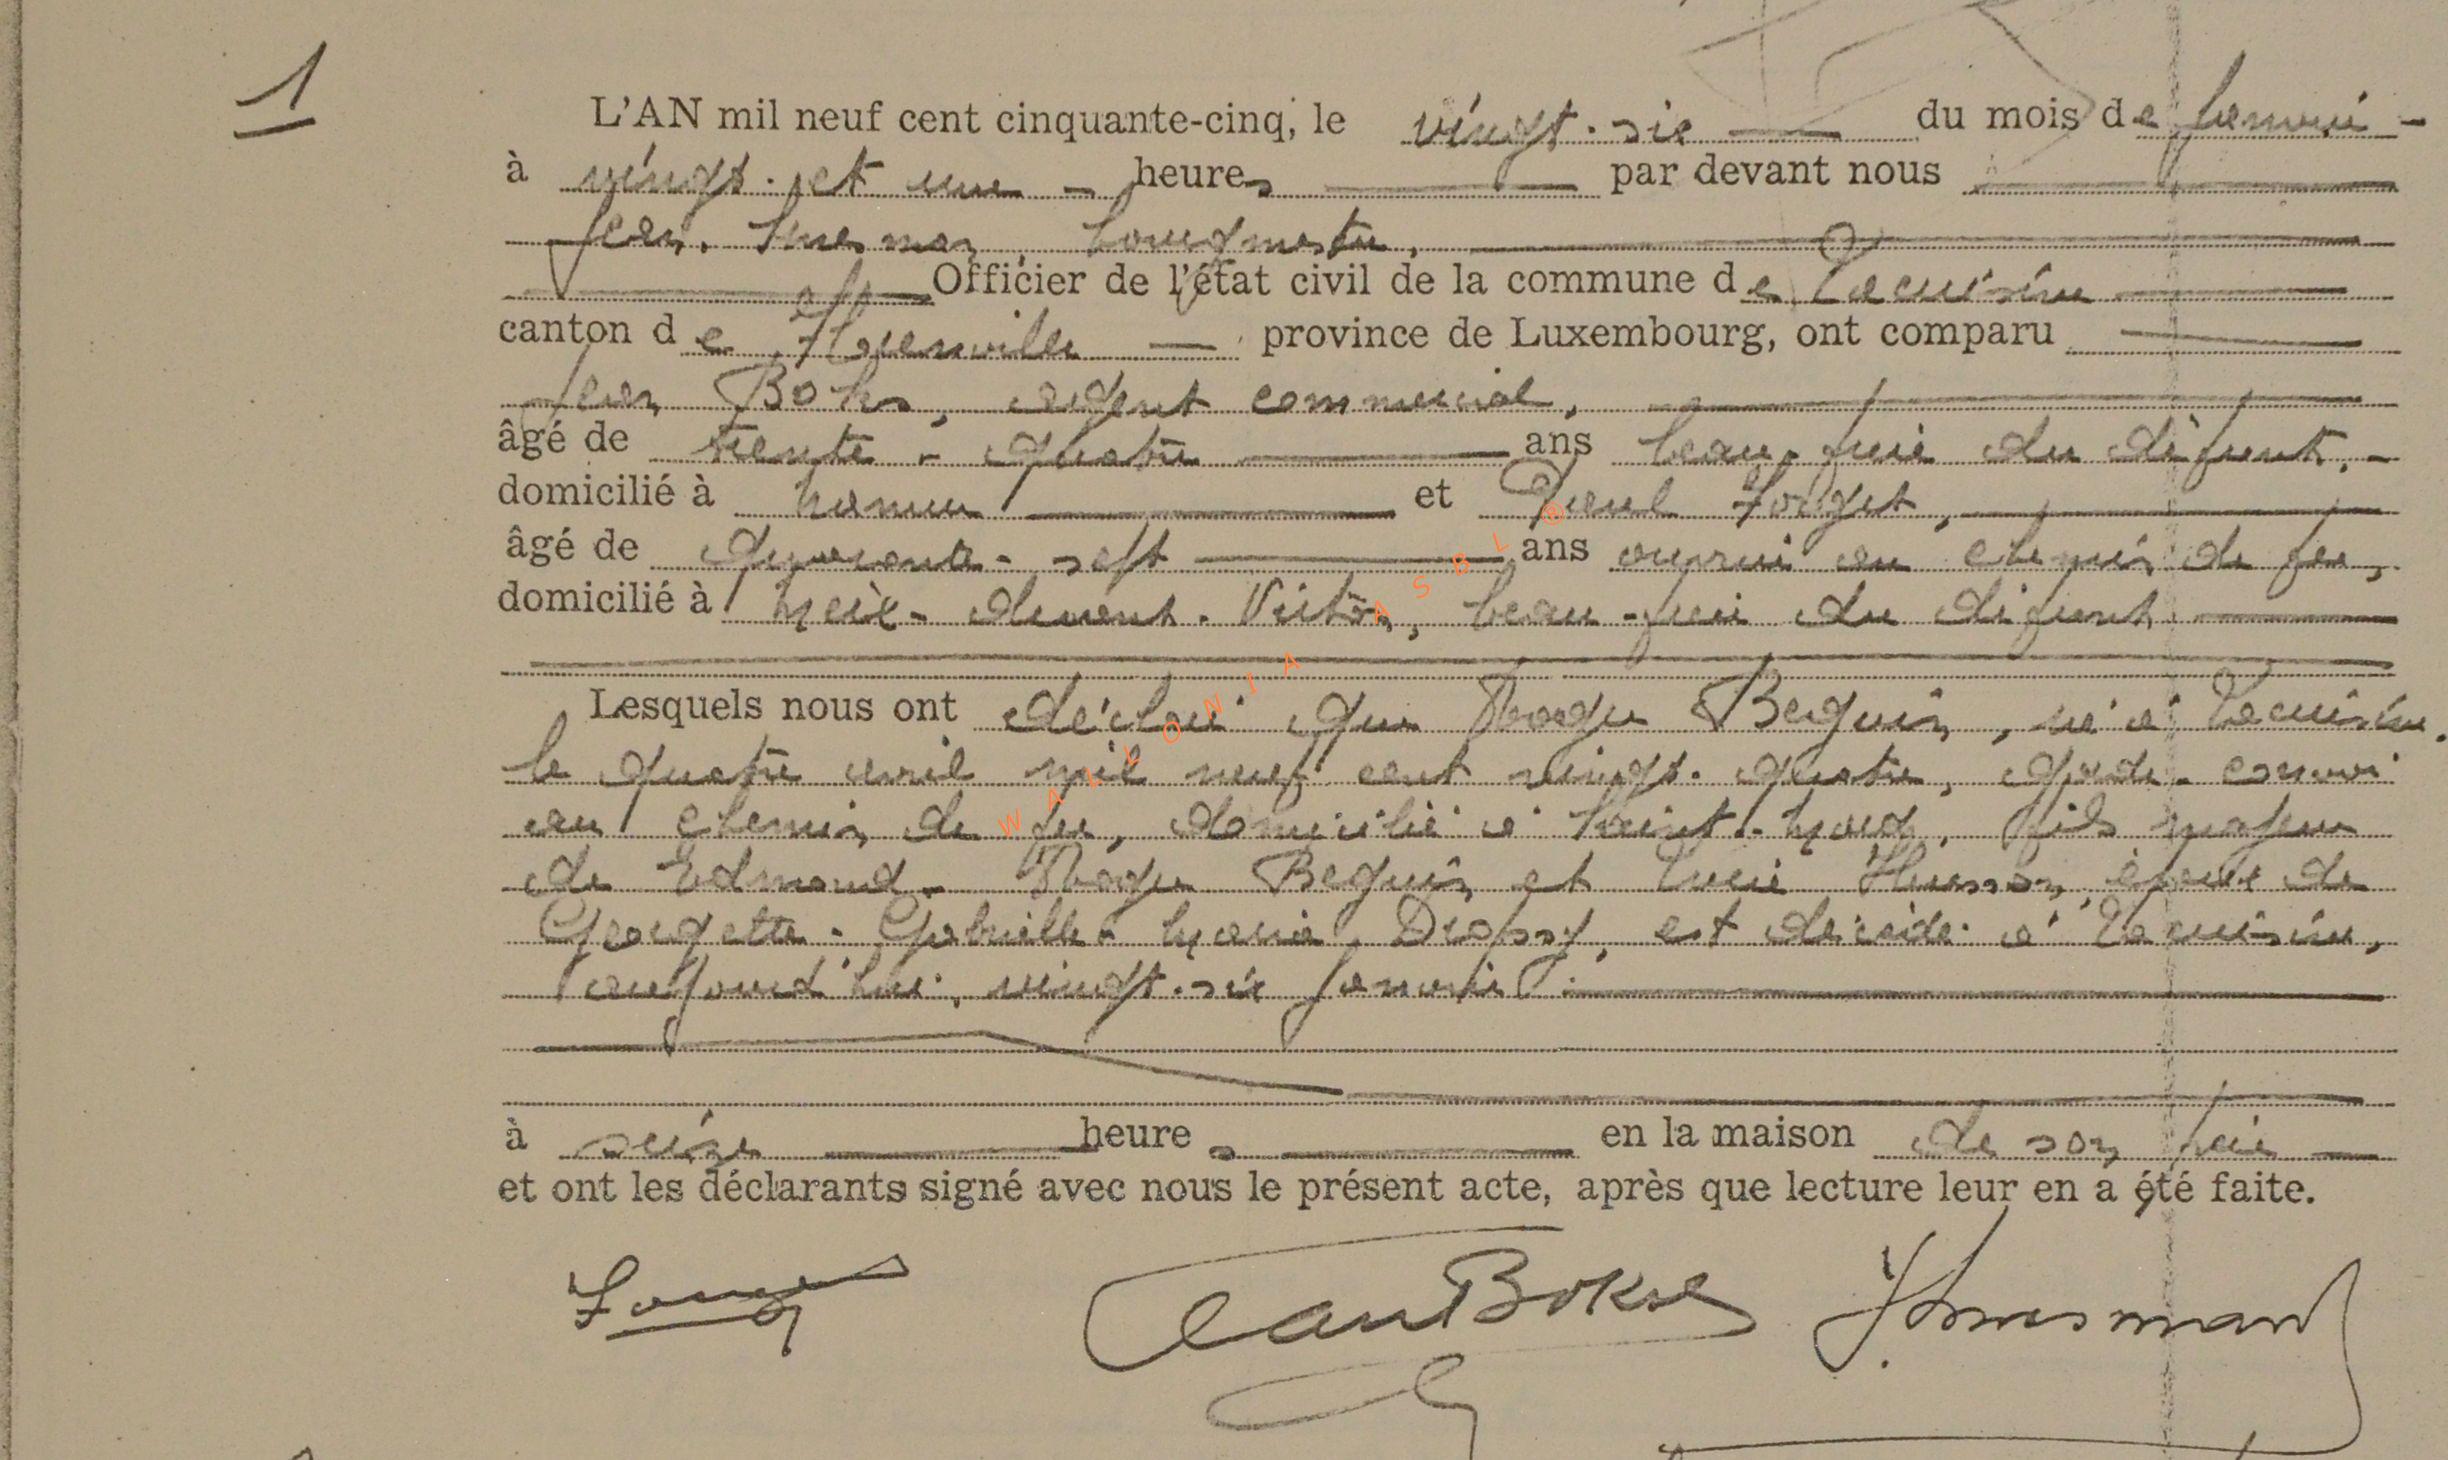 1
L'AN mil neuf cent cinquante-cinq, le vingt-six du mois de janvier
à vingt et une heures par devant nous
Jean bourgmestre,
Officier de l'état civil de la commune de Lacuisine
canton de Florenville province de Luxembourg, ont comparu
Jean Boks, agent commercial,
âgé de trente-quatre ans beau-frère du défunt,
domicilié à Namur et Paul Forget,
âgé de quarante-sept ans ouvrier au chemin de fer,
domicilié à Meix-devant-Virton, beau-frère du défunt
Lesquels nous ont déclaré que Roger Bequin, né à Lacuisine
le quatre avril mil neuf cent vingt-quatre, garde-convoi
au chemin de fer, domicilié à Saint-Mard, fils majeur
de Edmond-Roger Bequin et Lucie Husson, époux de
Georgette-Gabrielle-Marie Dropsy, est décédé à Lacuisine,
aujourd'hui, vingt-six janvier
à seize heures en la maison de son père
et ont les déclarants signé avec nous le présent acte, après que lecture leur en a été faite.
Jean Boks
WALLONIA ASBL ®